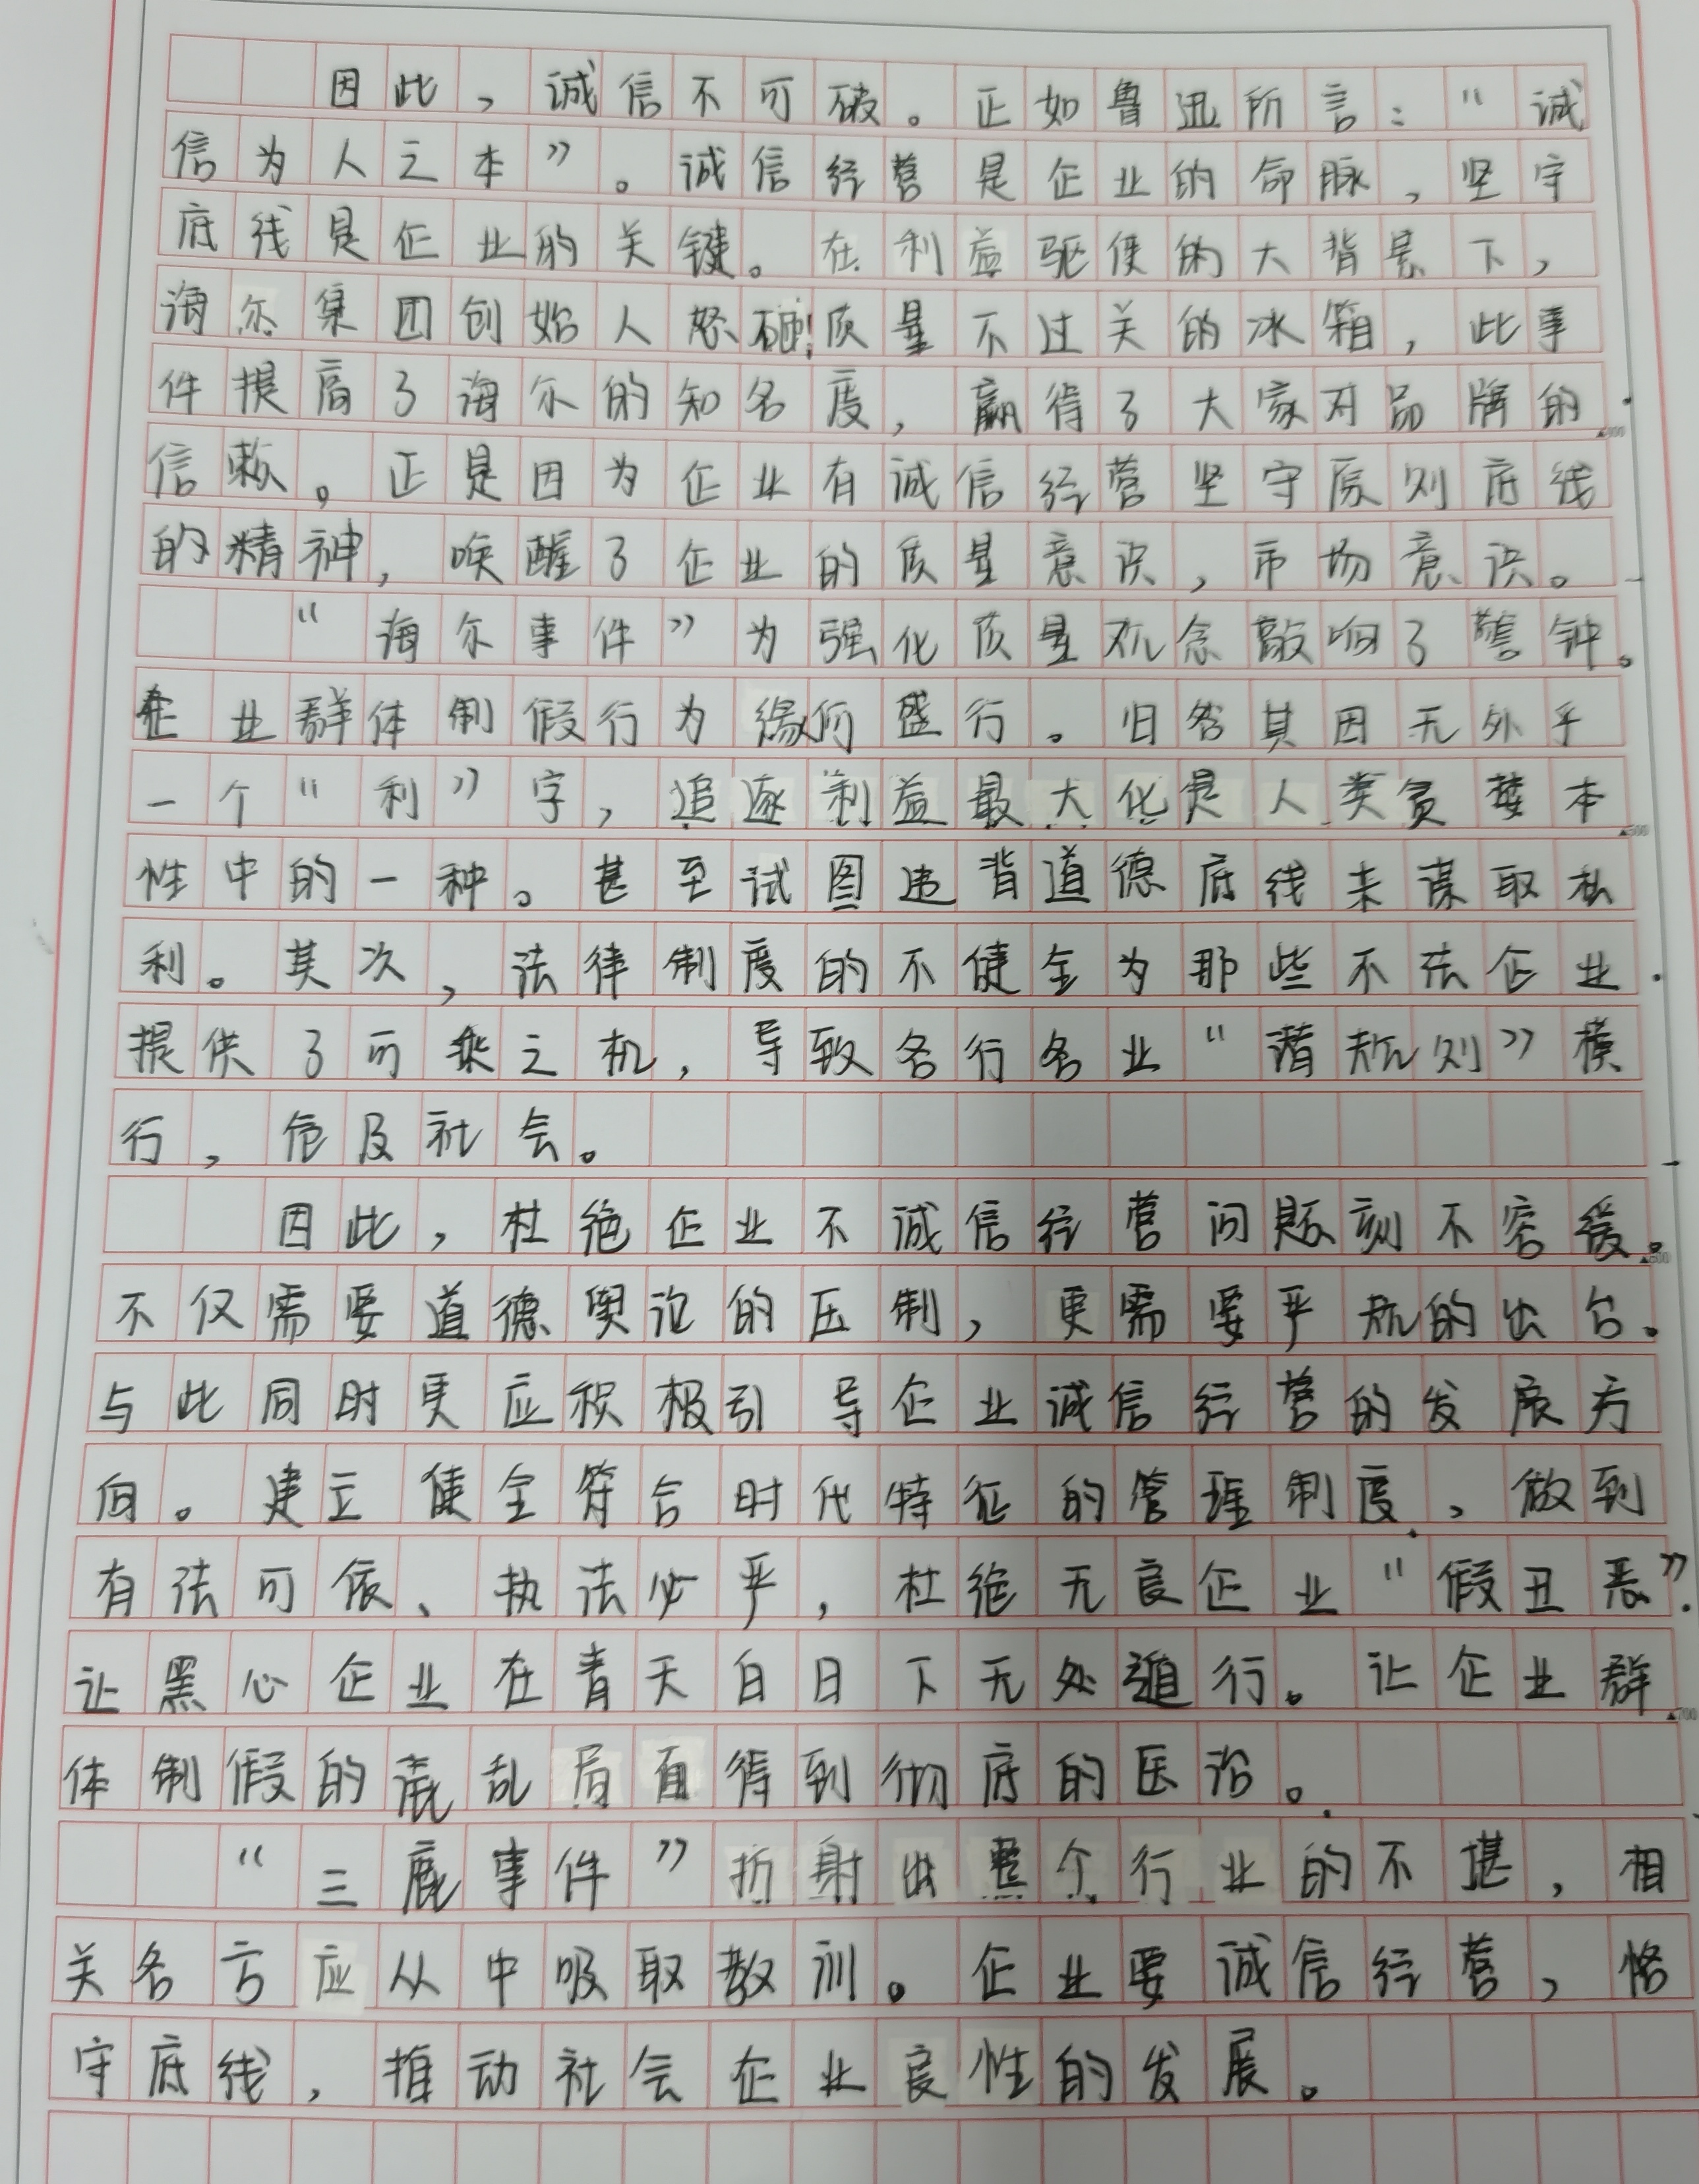 因此，诚信不可破。正如鲁迅所言：“诚
信为人之本”。诚信经营是企业的命脉，坚守
底线是企业的关键。在利益驱使的大背景下，
海尔集团创始人怒砸质量不过关的冰箱，此事
件提高了海尔的知名度，赢得了大家对品牌的
信赖。正是因为企业有诚信经营坚守原则底线
的精神，唤醒了企业的质量意识，市场意识。
“海尔事件”为强化质量观念敲响了警钟。
企业群体制假行为缘何盛行。归咎其因无外乎
一个“利”字，追逐利益最大化是人类贪婪本
性中的一种。甚至试图违背道德底线来谋取私
利。其次，法律制度的不健全为那些不法企业
提供了可乘之机，导致各行各业“潜规则”横
行，危及社会。
因此，杜绝企业不诚信经营问题刻不容缓。
不仅需要道德舆论的压制，更需要严规的出台。
与此同时更应积极引导企业诚信经营的发展方
向。建立健全符合时代特征的管理制度，做到
有法可依、执法必严，杜绝无良企业“假丑恶”.
让黑心企业在青天白日下无处遁行。让企业群
体制假的混乱局面得到彻底的医治。
“三鹿事件”折射出整个行业的不堪，相
关各方应从中吸取教训。企业要诚信经营，恪
守底线，推动社会企业良性的发展。